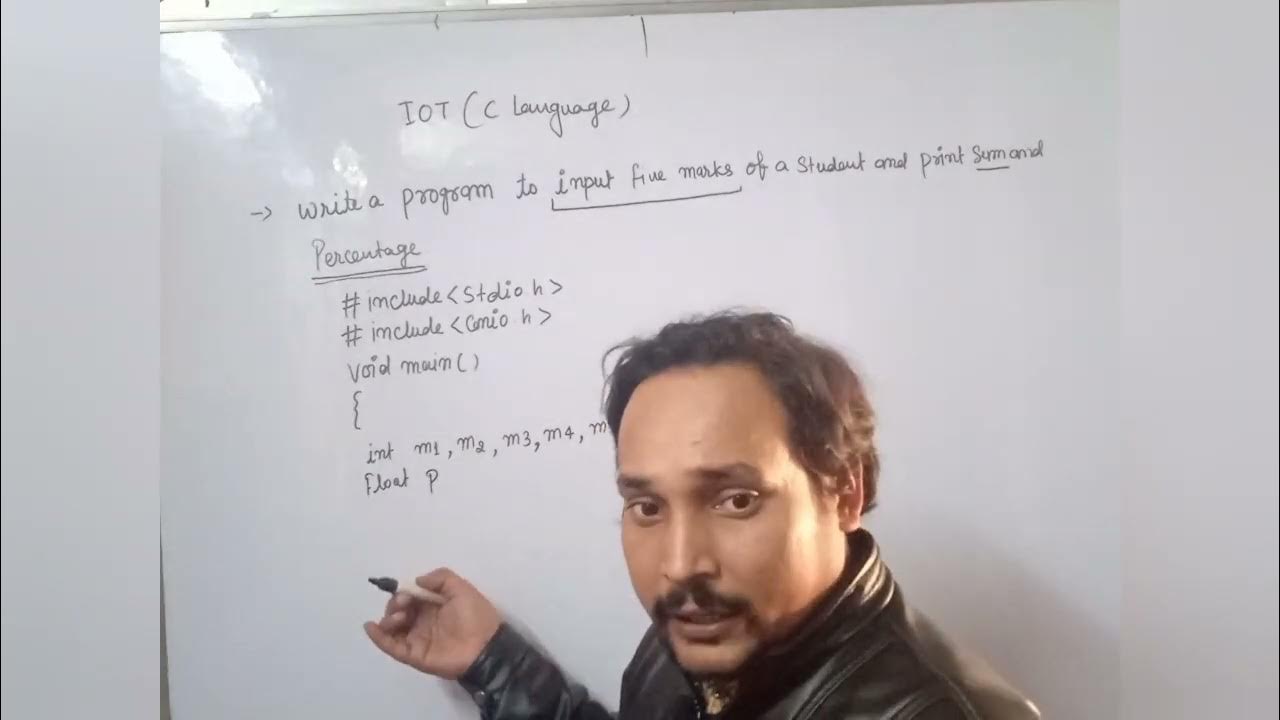 IOT (C Language)
-> Write a program to input five marks of a Student and print Sum and
Percentage
# include <Stdio.h>
# include <Conio.h>
Void main()
{
int m1, m2, m3, m4, m
Float P